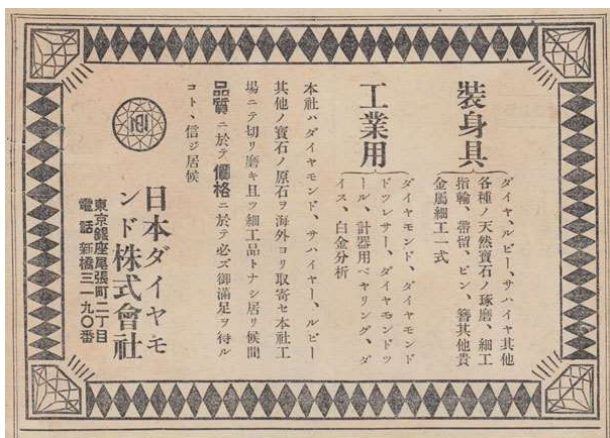 装身具
ダイヤ、ルビー、サハイヤ其他
各種ノ天然寶石ノ琢磨、細工
指輪、帯留、ピン、簪其他貴
金属細工一式
工業用
ダイヤモンド、ダイヤモンド
ドツレサー、ダイヤモンドツ
ール、計器用ベヤリング、ダ
イス、白金分析
本社ハダイヤモンド、サハイヤー、ルビー
其他ノ寶石ノ原石ヲ海外ヨリ取寄セ本社工
場ニテ切リ磨キ且ツ細工品トナシ居リ候間
品質ニ於テ價格ニ於テ必ズ御滿足ヲ得ル
コト、信ジ居候
日本ダイヤモ
ンド株式會社
東京銀座尾張町二丁目
電話新橋三一九〇番